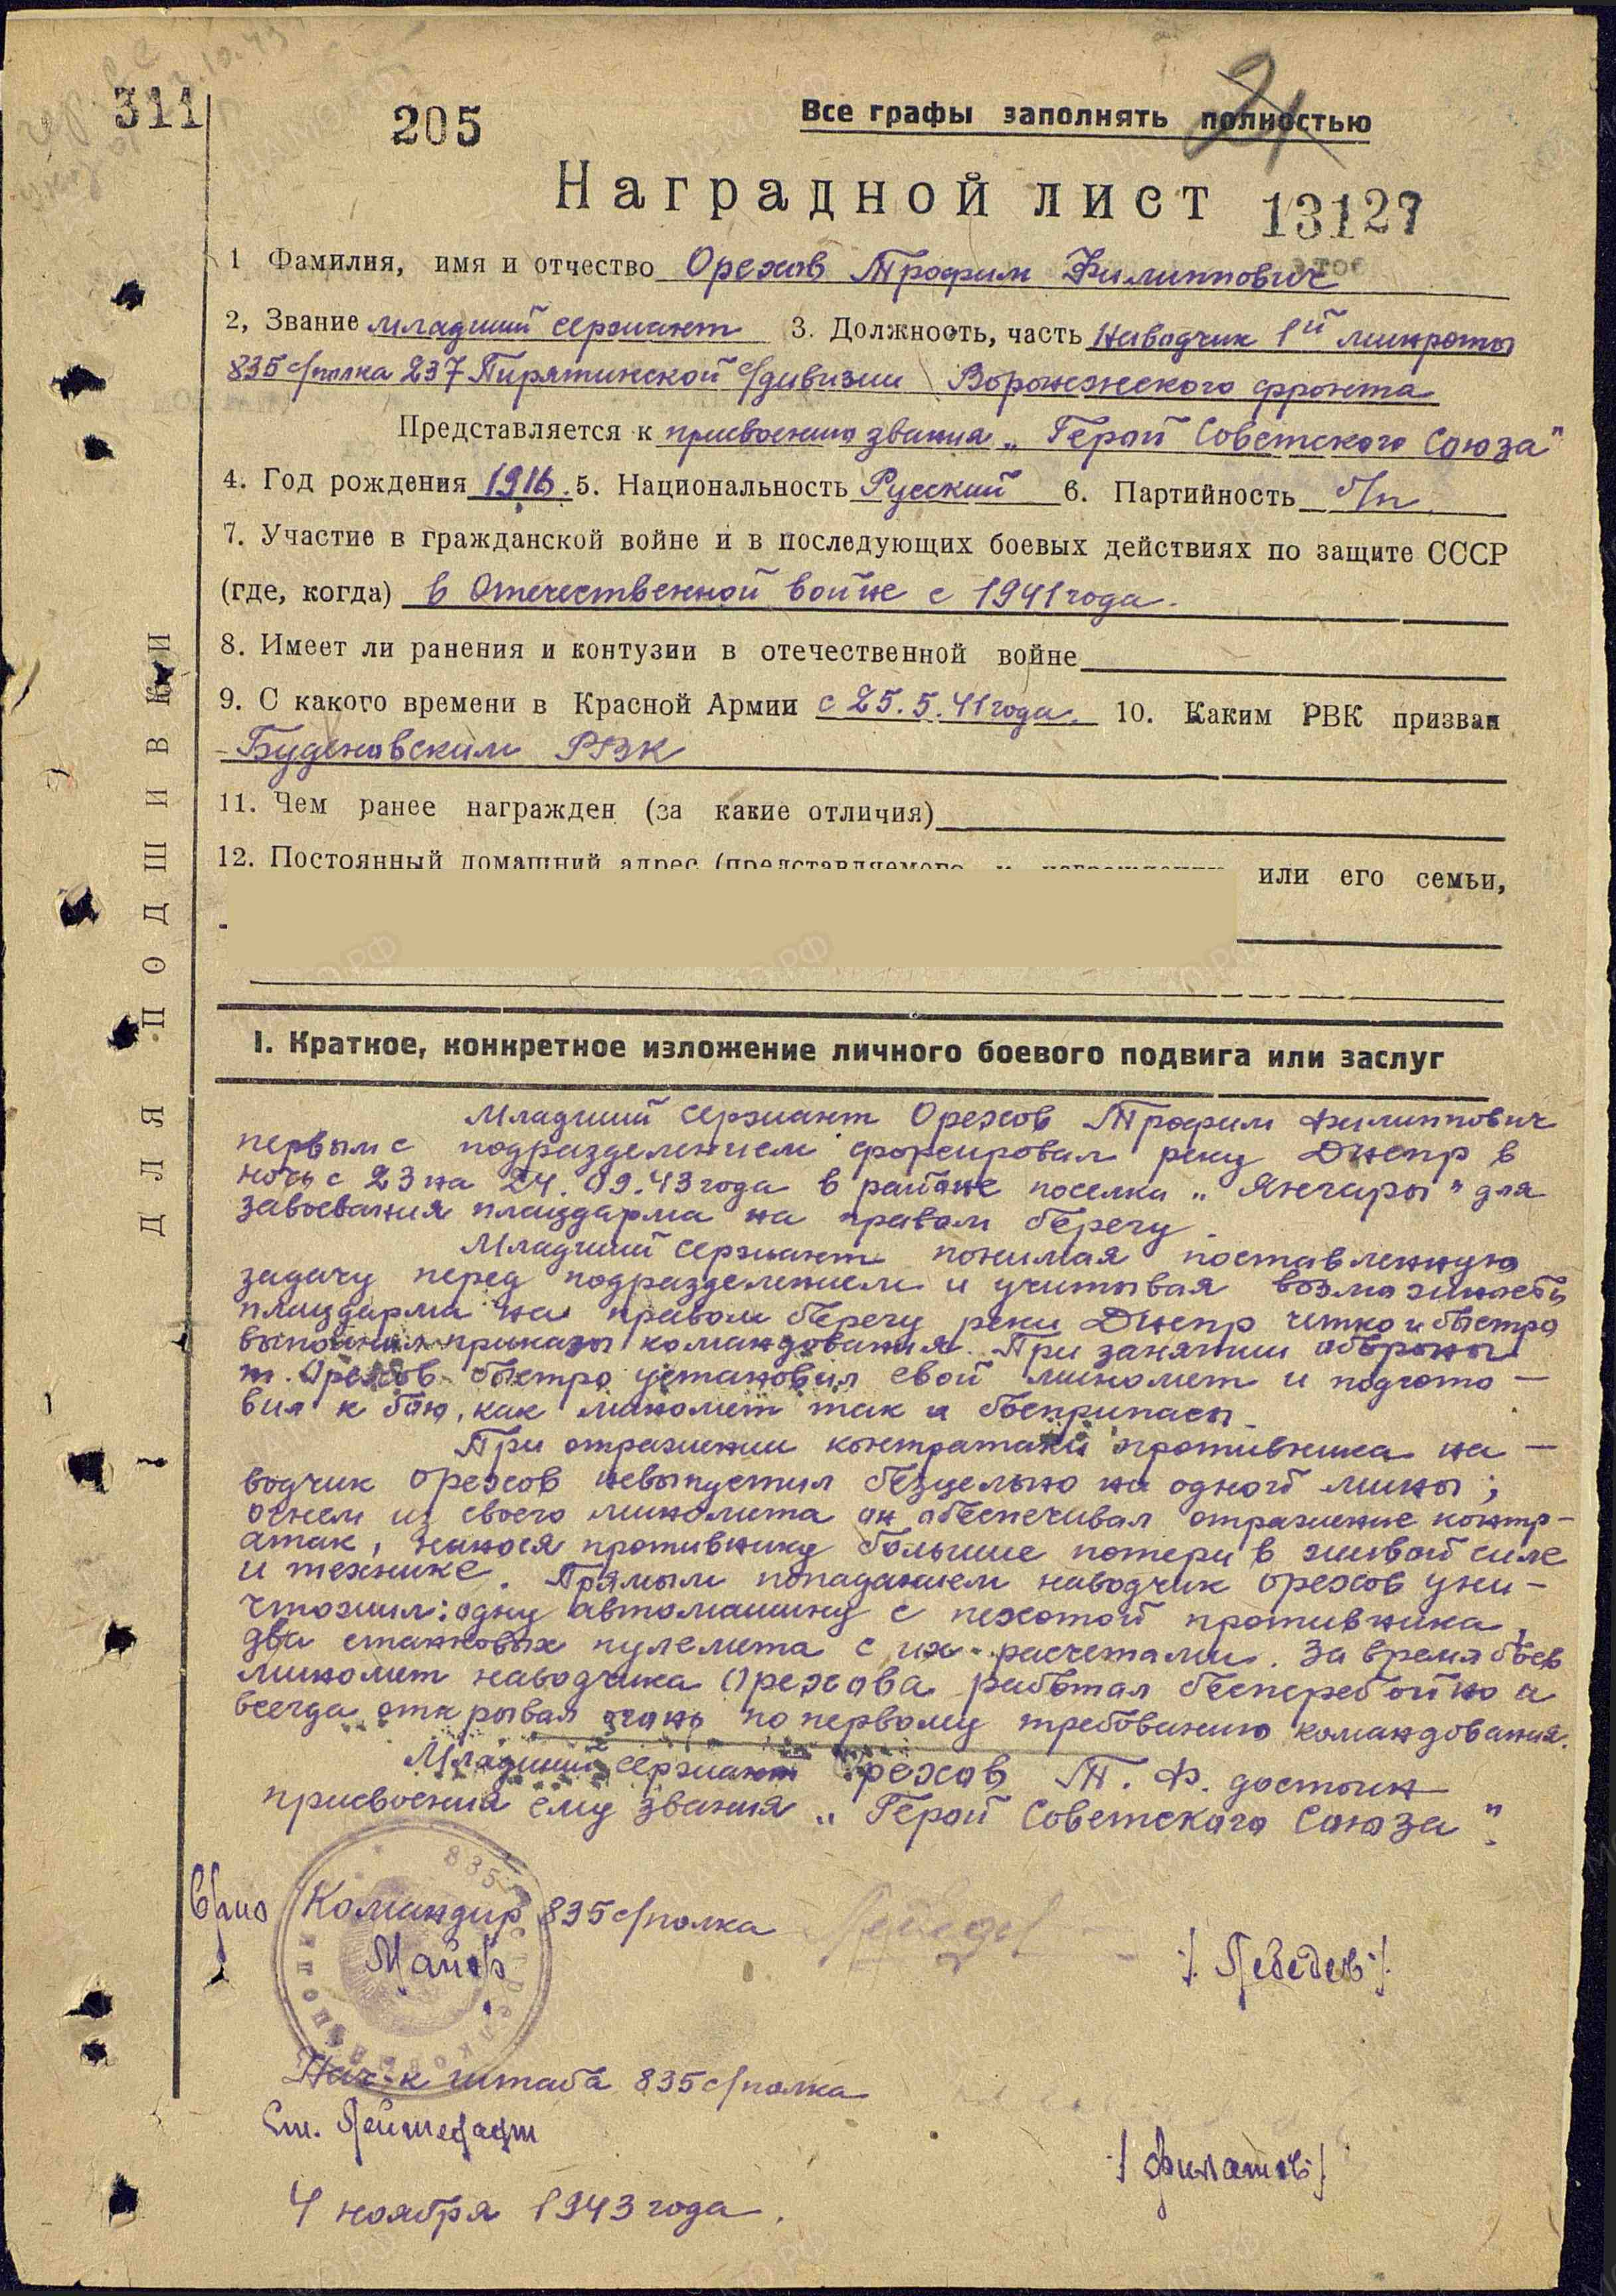 311
205
Все графы заполнять полностью
21
Наградной лист 13127
1 Фамилия, имя и отчество Орехов Трофим Филиппович
2, Звание младший сержант 3. Должность, часть Наводчик 1й минроты
835 с/полка 237 Пирятинской с/дивизии Воронежского фронта
Представляется к присвоению звания „Герой Советского Союза"
4. Год рождения 1916. 5. Национальность Русский 6. Партийность б/п.
7. Участие в гражданской войне и в последующих боевых действиях по защите СССР
(где, когда) в Отечественной войне с 1941 года.
8. Имеет ли ранения и контузии в отечественной войне
9. С какого времени в Красной Армии с 25.5.41 года. 10. Каким РВК призван
Буденовским РВК
11. Чем ранее награжден (за какие отличия)
12. Постоянный домашний адрес (представляемого к награждению или его семьи,
ДЛЯ ПОДШИВКИ
I. Краткое, конкретное изложение личного боевого подвига или заслуг
Младший сержант Орехов Трофим Филиппович
первым с подразделением форсировал реку Днепр в
ночь с 23 на 24.09.43 года в районе поселка „Янчары" для
завоевания плацдарма на правом берегу.
Младший сержант понимая поставленную
задачу перед подразделением и учитывая возможность
плацдарма на правом берегу реки Днепр четко и быстро
выполнял приказы командования. При занятии обороны
т. Орехов быстро установил свой миномет и подгото-
вил к бою, как миномет так и боеприпасы.
При отражении контратаки противника на-
водчик Орехов невыпустил безцельно ни одной мины;
огнем из своего миномета он обеспечивал отражение контр-
атак, нанося противнику большие потери в живой силе
и технике. Прямым попаданием наводчик Орехов уни-
чтожил: одну автомашину с пехотой противника,
два станковых пулемета с их расчетами. За время боев
миномет наводчика Орехова работал бесперебойно и
всегда открывал огонь по первому требованию командования.
Младший сержант Орехов Т. Ф. достоин
присвоения ему звания „Герой Советского Союза".
Врио Командир 835 с/полка
Майор /Лебедев/
Нач-к штаба 835 с/полка
Ст. Лейтенант /Филатов/
4 ноября 1943 года.